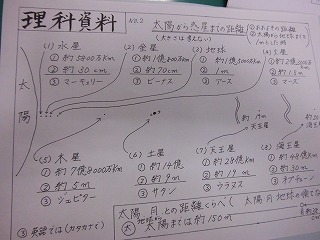 理科資料
No.2
太陽から惑星までの距離
(大きさは考えない)
①およその距離
②太陽から地球まで
1mとした時
太陽
(1) 水星
①約5800万km
②約30cm
③マーキュリー
(2) 金星
①約1億800万km
②約70cm
③ビーナス
(3) 地球
②1m
③アース
(4) 火星
②約1.5m
③マーズ
約19m
天王星
約30m
海王星
(5) 木星
①約7億8000万km
②約5m
③ジュピター
(6) 土星
①約14億
②約9m
③サタン
(7) 天王星
①約28億km
②約19m
③ウラヌス
(8) 海王星
①約45億km
②約30m
③ネプチューン
③英語では(カタカナで)
太陽 月 との距離くらべ
太陽までは約150m